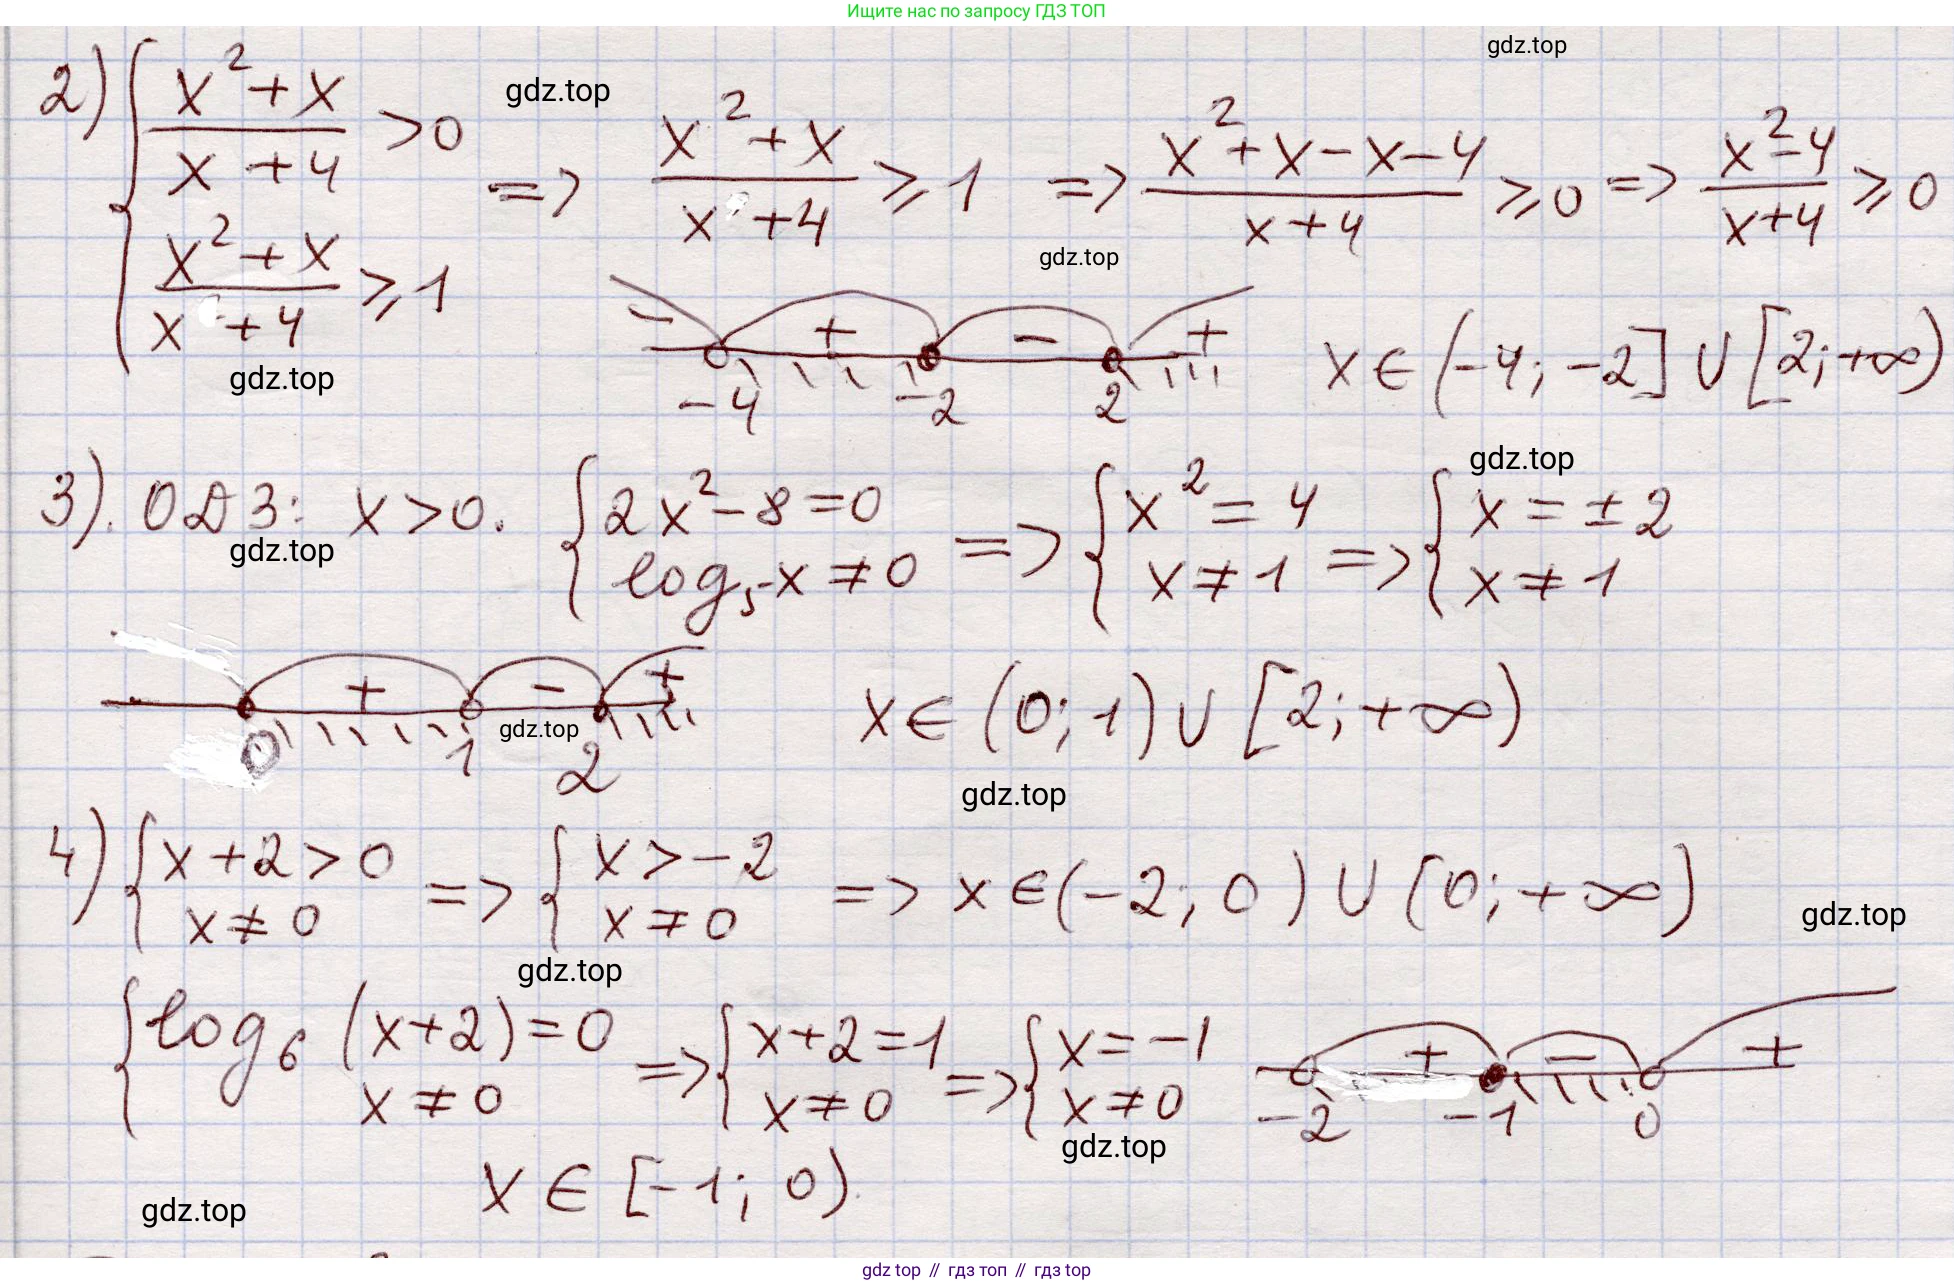 Ищите нас по запросу ГДЗ ТОП
gdz.top
2) { (x² + x)/(x + 4) > 0 ; (x² + x)/(x + 4) ⩾ 1 => (x² + x)/(x + 4) ⩾ 1 => (x² + x − x − 4)/(x + 4) ⩾ 0 => (x² − 4)/(x + 4) ⩾ 0
gdz.top
gdz.top
− + − +
−4 −2 2
x ∈ (−4; −2] ∪ [2; +∞)
gdz.top
gdz.top
3). ОДЗ: x > 0. { 2x² − 8 = 0 ; log₅ x ≠ 0 => { x² = 4 ; x ≠ 1 => { x = ± 2 ; x ≠ 1
gdz.top
+ − +
0 1 2
gdz.top
x ∈ (0; 1) ∪ [2; +∞)
gdz.top
4) { x + 2 > 0 ; x ≠ 0 => { x > −2 ; x ≠ 0 => x ∈ (−2; 0) ∪ (0; +∞)
gdz.top
gdz.top
{ log₆ (x + 2) = 0 ; x ≠ 0 => { x + 2 = 1 ; x ≠ 0 => { x = −1 ; x ≠ 0
+ − +
−2 −1 0
gdz.top
x ∈ [−1; 0)
gdz.top
gdz top // гдз топ // гдз top